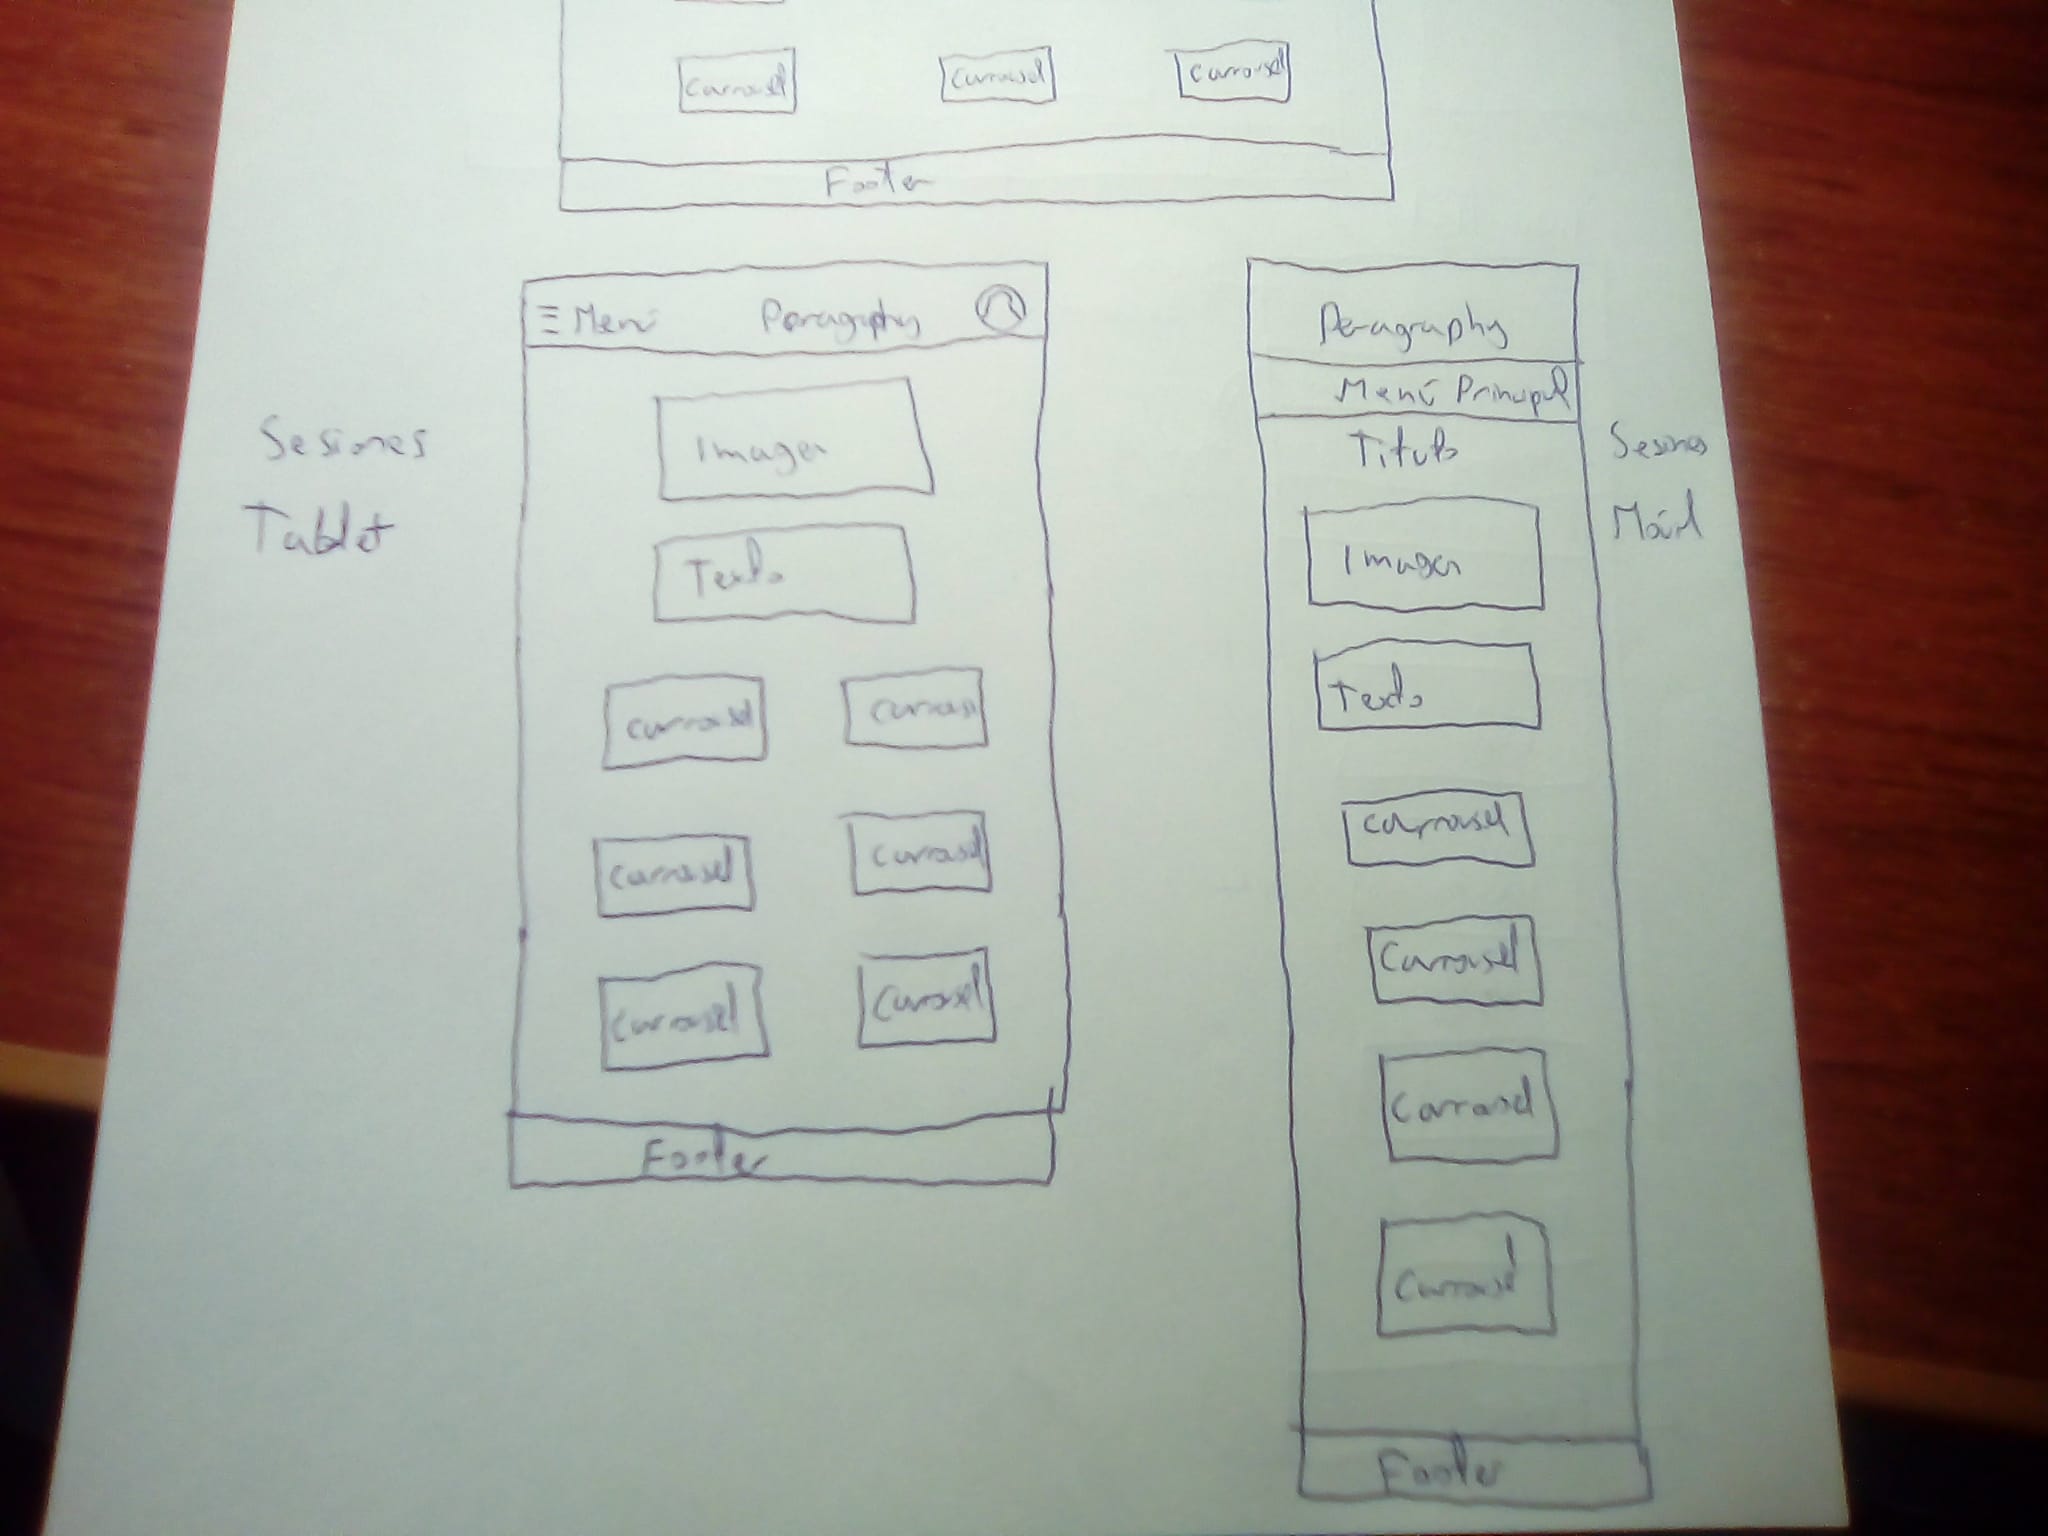 Carrousel Carrousel Carrousel
Footer
Menú Peragraphy
Sesiones
Tablet
Imagen
Texto
Carrousel Carrousel
Carrousel Carrousel
Carrousel Carrousel
Footer
Peragraphy
Menú Principal
Titulo
Sesiones
Móvil
Imagen
Texto
Carrousel
Carrousel
Carrousel
Carrousel
Footer